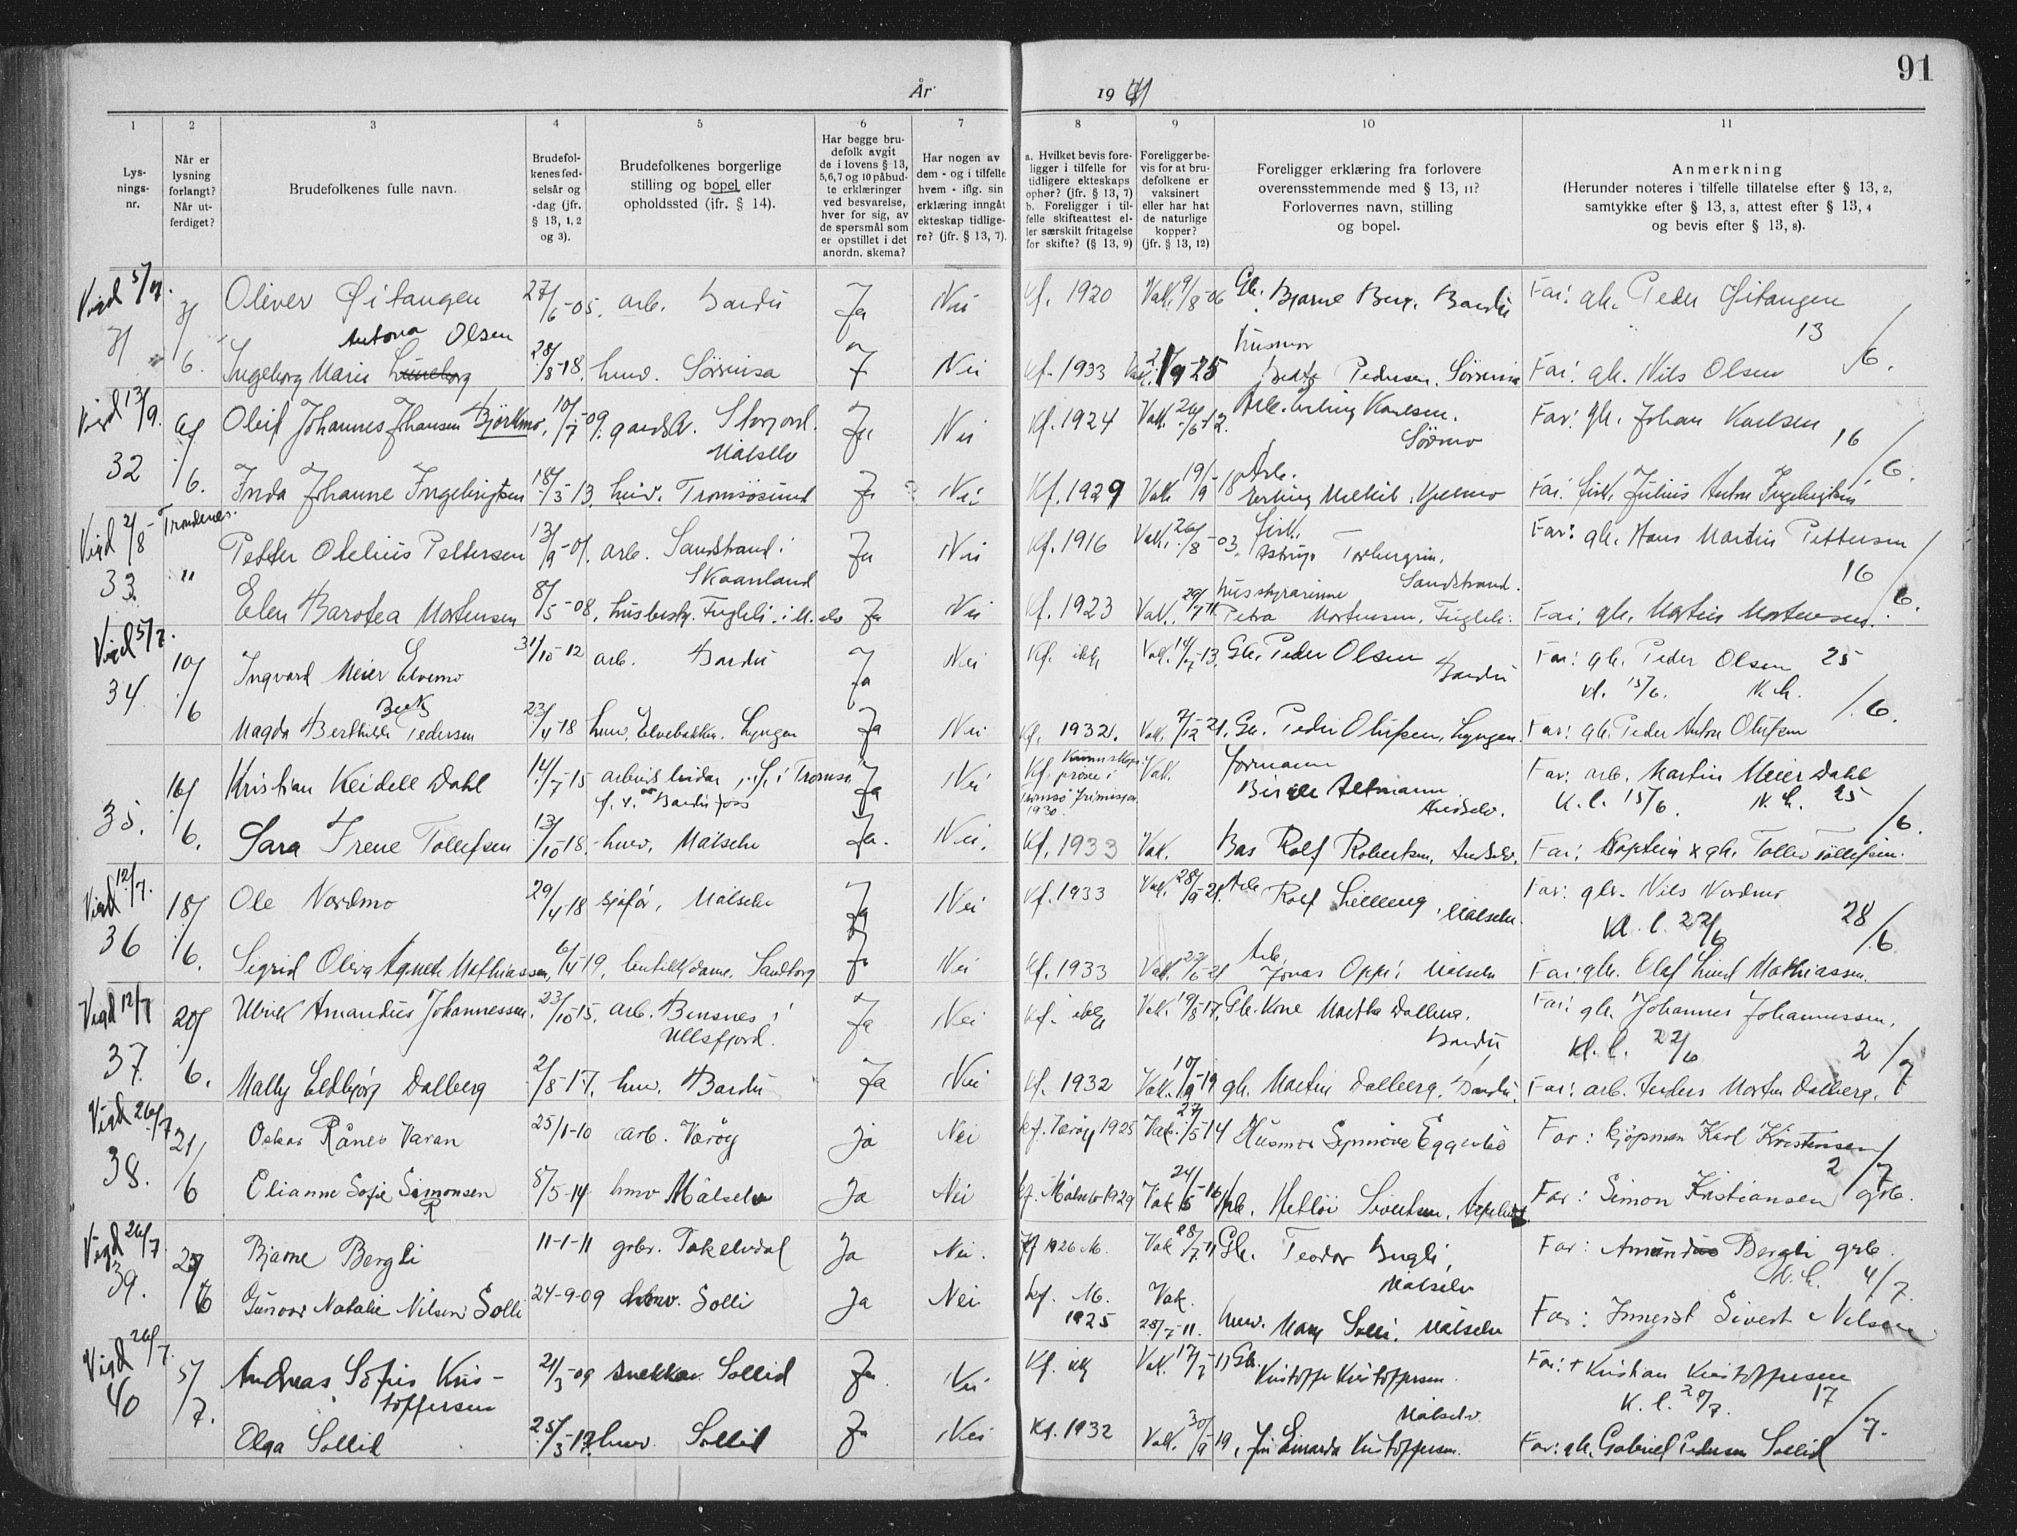 91
År 1941
1 2 3 4 5 6 7 8 9 10 11
Lys-
nings-
nr.
Når er
lysning
forlangt?
Når ut-
ferdiget?
Brudefolkenes fulle navn.
Brudefol-
kenes fød-
selsår og
-dag (jfr.
§ 13, 1, 2
og 3).
Brudefolkenes borgerlige
stilling og bopel eller
opholdssted (jfr. § 14).
Har begge bru-
defolk avgit
de i lovens § 13,
5,6,7 og 10 påbud-
te erklæringer
ved besvarelse,
hver for sig, av
de spørsmål som
er opstillet i det
anordn. skema?
Har nogen av
dem - og i tilfelle
hvem - iflg. sin
erklæring inngåt
ekteskap tidlige-
re? (jfr. § 13, 7).
a. Hvilket bevis fore-
ligger i tilfelle for
tidligere ekteskaps
ophør? (jfr. § 13, 7)
b. Foreligger i til-
felle skifteattest el-
ler særskilt fritagelse
for skifte? (§ 13, 9)
Foreligger be-
vis for at bru-
defolkene er
vaksinert
eller har hat
de naturlige
kopper?
(jfr. § 13, 12)
Foreligger erklæring fra forlovere
overensstemmende med § 13, 11?
Forlovernes navn, stilling
og bopel.
Anmerkning
(Herunder noteres i tilfelle tillatelse efter § 13, 2,
samtykke efter § 13, 3, attest efter § 13, 4
og bevis efter § 13, 8).
Vigd 5/7. Oliver Øitangen 27/6-05. arb. Bardu Ja Nei Kf. 1920 Vak. 9/8-06 Gb. Bjarne Berg. Bardu Far: gb. Peder Øitangen
Antona Olsen husmor 13/6.
6. Ingeborg Marie 28/8-18. husv. Sørreisa J Nei Kf. 1933 Pedersen. Sørreisa Far: gb. Nils Olsen
Vigd 13/9. Oleif Johannes Johansen Björkmo, 10/7-09. gardsa. Storjord. Målselv Ja Nei Kf. 1924 Vak. Arb. Erling Karlsen. Sörmo Far: gb. Johan Karlsen 16/6
32 6. Inda Johanne Ingebrigtsen 18/3-13. husv. Tromsösund Ja Nei Kf. 1929 Vak. 19/9-18 Arb. Far: fisk. Julius Anton Ingebrigtsen
Vigd 2/8 - Trondenes. Petter Otelius Pettersen 13/9-01. arb. Sandstrand i Skaanland Ja Nei Kf. 1916 Vak. 26/8-03. fisk. Sandstrand. Far: gb. Hans Martin Pettersen 16/6.
33. " Elen Barotea Mortensen 8/5-08. husbesty. Fugleli i M.elv Ja Nei Kf. 1923 Vak. 29/7-11. husstyrarinne Petra Mortensen, Fugleli. Far: gb. Martin Mortensen.
Vigd 5/7. 10/6 Ingvard Meier Elvemo 31/10-12 arb. Bardu Ja Nei Kf. ikke Vak. 14/7-13. Gb. Peder Olsen Bardu Far: gb. Peder Olsen 25/6.
34. Kl. 15/6. N. h.
Magda Berthilde Beck Pedersen 23/4-18 husv. Elvebakken. Lyngen Ja Nei Kf. 1932. Vak. 7/12-21. Gb. Peder Olufsen, Lyngen. Far: gb. Peder Anton Olufsen
16/6. Kristian Keidell Dahl 14/7-15 i Tromsø Bardufoss Ja Nei Kf. 1930. Vak. formann Altmann Andselv. Far: arb. Martin Meier Dahl
35. K. l. 15/6. N. h. 25/6.
Sara Irene Tollefsen 13/10-18. husv. Målselv Ja. Nei. Kf. 1933 Vak. Bas Rolf Robertsen, Andselv. Far: Kaptein x gb. Tollev Tollefsen.
Vigd 12/7. 18/6. Ole Nordmo 29/4-18 sjåfør, Målselv Ja Nei Kf. 1933 Vak. 28/9-21. Arb. Rolf Målselv. Far: gbr. Nils Nordmo
36 Kl. l. 22/6 28/6
Sigrid Oliva Agnete Mathiassen, 6/4-19, butikkdame. Sandtorg Ja Nei Kf. 1933 Vak. Arb. Jonas Målselv Far: gb. Olaf Lind Mathiassen.
Vigd 12/7 20/6. Ulrik Amandus Johannessen. 23/10-15. arb. Bensnes i Ullsfjord. Ja Nei Kf. ikke Vak. 19/8-17. Gb. Kone Martha Dalberg. Bardu Far: gb. Johannes Johannessen,
37. Kl. l. 22/6 2/7
Mally Eldbjørg Dalberg 2/8-17. husv. Bardu Ja Nei Kf. 1932 Vak. 10/9-19 gb. Martin Dalberg. Bardu. Far: arb. Anders Morten Dalberg.
Vigd 26/7 21/6 Oskar Råner Varan 25/1-10 arb. Værøy ja Nei Kf. Værøy 1925 Vak. 27/5-14 Husmor Synnöve Eggesbö Far: kjöpman Karl Kristensen 2/7
38. Elianne Sofie Simonsen 8/5-14 husv Målselv Ja Nei Kf. Målselv 1929 Vak 24/5-16 Sivertsen, Far: Simon Kristiansen grb.
Vigd 26/7 Bjarne Bergli 11-1-11 grbr. Takelvdal Ja Nei. Kf 1926 M. Vak 28/7-11 Gb. Teodor Bergli, Målselv Far: Amandus Bergli grb.
39. K. l. 4/7.
Gunvor Natalie Nilsen Solli 24-9-09 husv. Solli Ja Nei Kf. M. 1925 Vak. 28/7-11. husv. Mary Solli, Målselv Far: Innerst Sivert Nilsen
Vigd 26/7. 5/7. Andreas Sofus Kris- 21/3-09 snekker. Sollid Ja. Nei Kf. ikke Vak. 17/7-11 Gb. Kristoffer Kristoffersen. Målselv. Far: + Kristian Kristoffersen
40 toffersen K. l. 20/7. 17/7.
Olga Sollid 25/3-17. husv. Sollid Ja Nei Kf. 1932 Vak. 30/9-19, Einarda Kristoffersen. Far: gb. Gabriel Pedersen Sollid